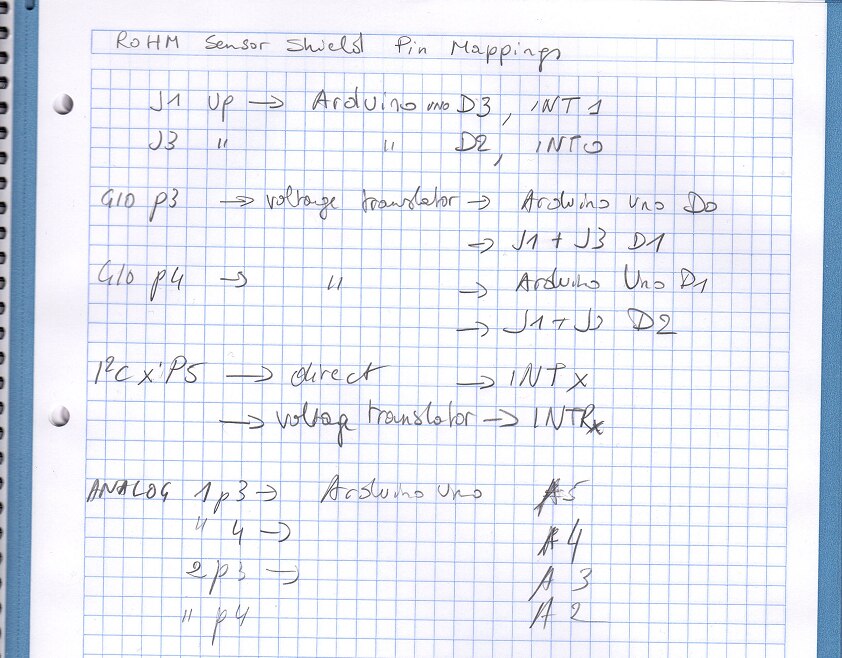 ROHM Sensor Shield Pin Mappings
J1 up → Arduino uno D3, INT1
J3 " " D2, INT0
GIO p3 → voltage translator → Arduino Uno D0
→ J1 + J3 D1
GIO p4 → " → Arduino Uno D1
→ J1 + J3 D2
I²C x P5 → direct → INTx
→ voltage translator → INTRx
ANALOG 1p3 → Arduino Uno A5
" 4 → A4
2p3 → A3
" p4 A2